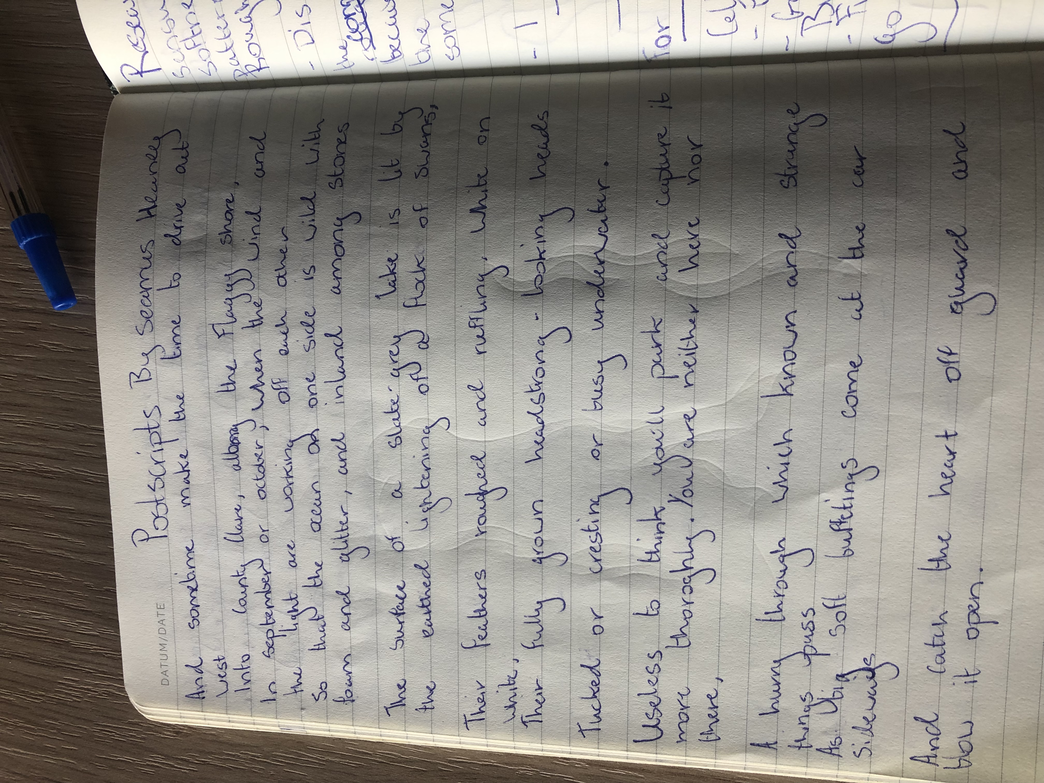 DATUM/DATE
Postscripts By Seamus Heaney
And sometime make the time to drive out
west
Into County Clare, along the Flaggy shore,
In september or october, when the wind and
the light are working off each other
So that the ocean on one side is wild with
foam and glitter, and inland among stones
The surface of a slate-grey lake is lit by
the earthed lightening of a flock of swans,
Their feathers roughed and ruffling, white on
white,
Their fully grown headstrong-looking heads
Tucked or cresting or busy underwater.
Useless to think you'll park and capture it
more thoroghly. You are neither here nor
there,
A hurry through which known and strange
things pass
As big soft buffetings come at the car
Sideways
And catch the heart off guard and
blow it open.
Resear
softne
Patter
- Dis
the
becau
the
some
- I
For
Go